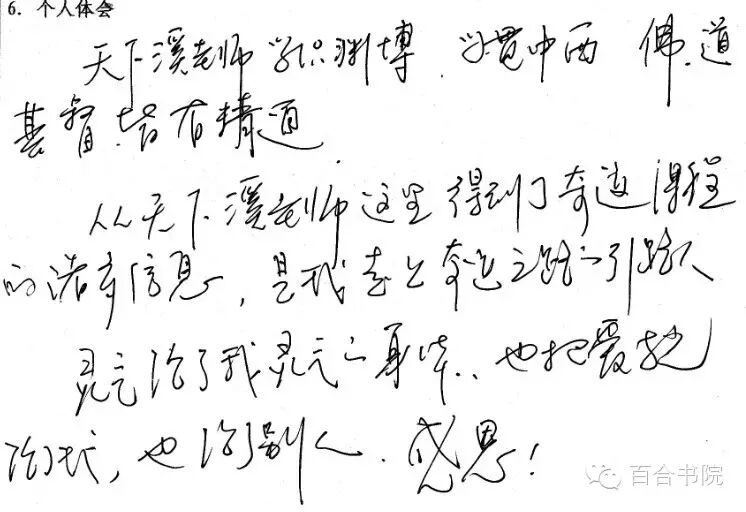 6. 个人体会
天下溪老师学识渊博、学贯中西 佛、道
基督、皆有精通
从天下溪老师这里得到了奇迹课程
的诸多信息,是我走上奇迹之路之引路人
灵气治了我灵气之身体、也把爱
也 别人、感恩!
百合书院